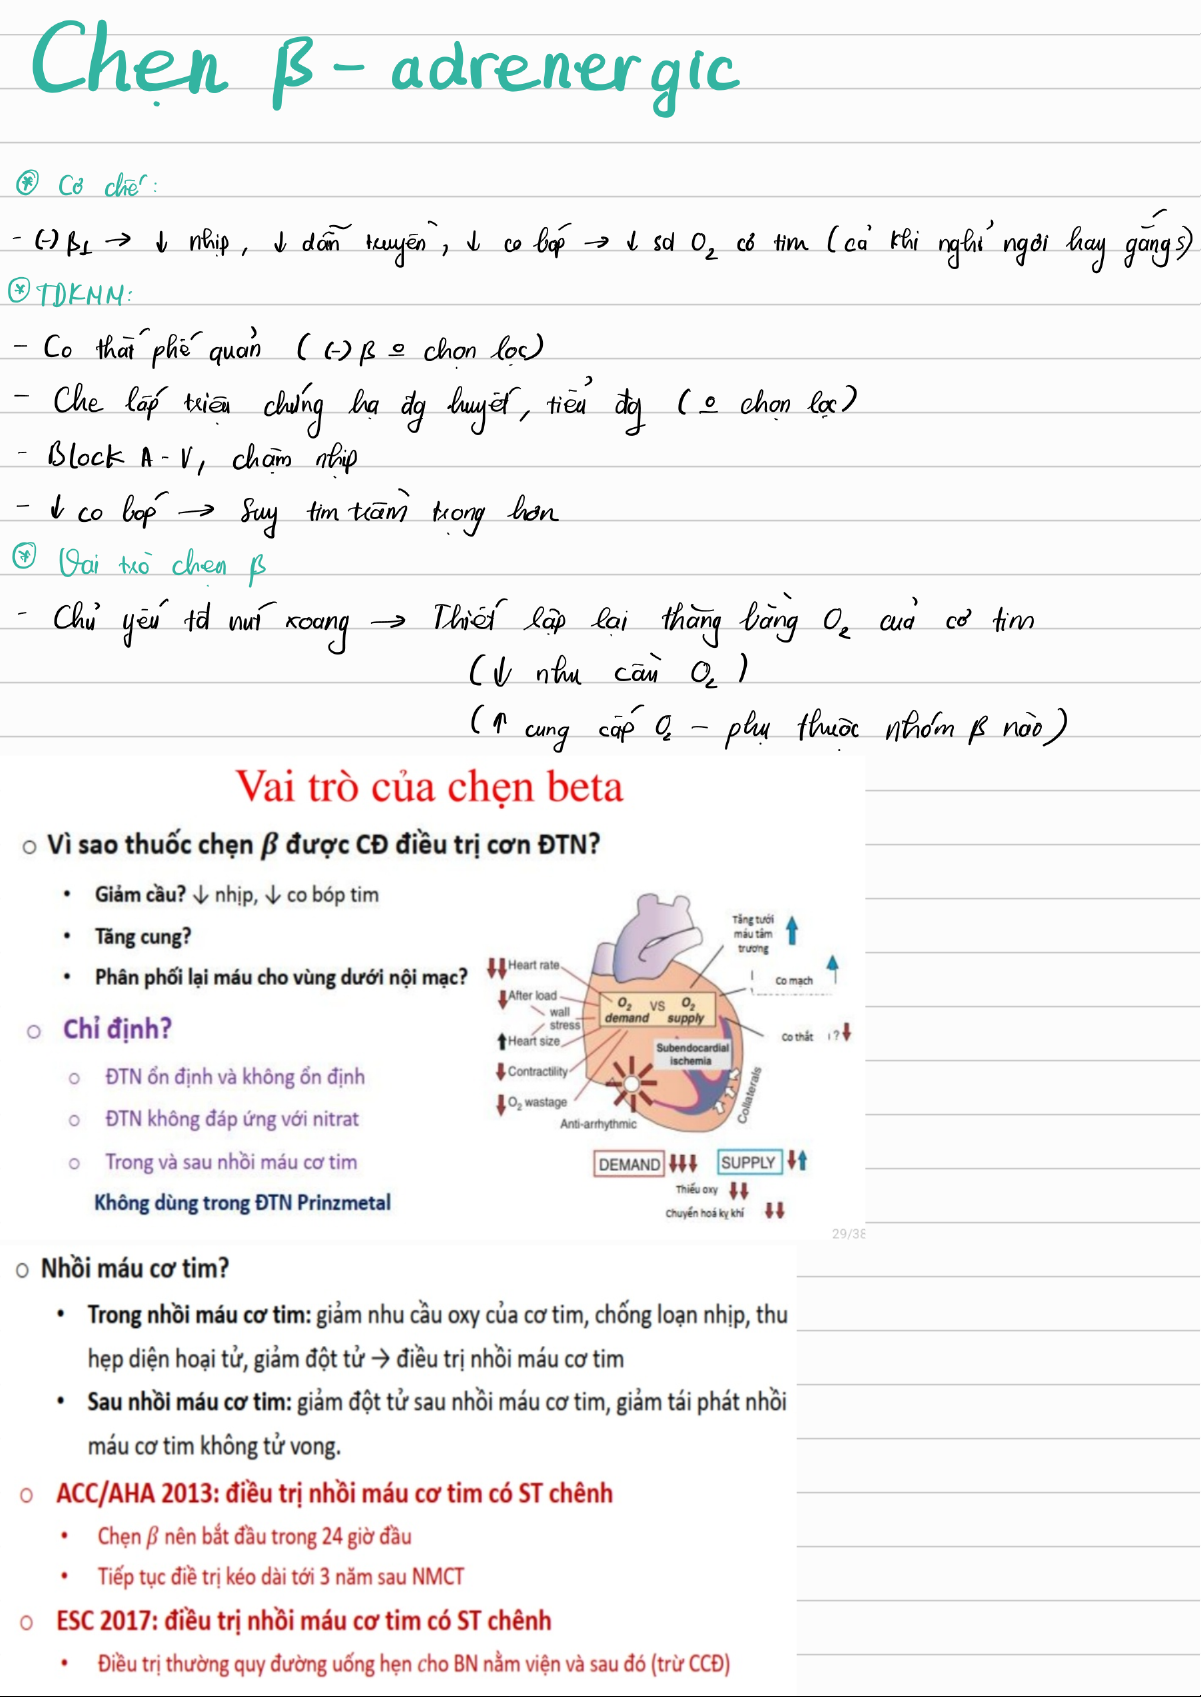 Chẹn β - adrenergic
Cơ chế:
- (-) β1 → ↓ nhịp, ↓ dẫn truyền, ↓ co bóp → ↓ sd O2 cơ tim (cả khi nghỉ ngơi hay gắng s)
TDKMM:
- Co thắt phế quản ( (-) β o chọn lọc)
- Che lấp triệu chứng hạ đg huyết, tiểu đg ( o chọn lọc)
- Block A-V, chậm nhịp
- ↓ co bóp → Suy tim trầm trọng hơn
Vai trò chẹn β
- Chủ yếu td nút xoang → Thiết lập lại thăng bằng O2 cuả cơ tim
(↓ nhu cầu O2 )
(↑ cung cấp O2 - phụ thuộc nhóm β nào)
Vai trò của chẹn beta
○ Vì sao thuốc chẹn β được CĐ điều trị cơn ĐTN?
• Giảm cầu? ↓ nhịp, ↓ co bóp tim
• Tăng cung?
• Phân phối lại máu cho vùng dưới nội mạc?
○ Chỉ định?
○ ĐTN ổn định và không ổn định
○ ĐTN không đáp ứng với nitrat
○ Trong và sau nhồi máu cơ tim
Không dùng trong ĐTN Prinzmetal
Tăng tưới
máu tâm
trương
Co mạch
Co thắt
?
Heart rate
After load
wall
stress
Heart size
Contractility
O2 wastage
O2 VS O2
demand supply
Subendocardial
ischemia
Collaterals
Anti-arrhythmic
DEMAND ↓↓↓ SUPPLY ↓↑
Thiếu oxy ↓↓
Chuyển hoá kỵ khí ↓↓
29/38
○ Nhồi máu cơ tim?
• Trong nhồi máu cơ tim: giảm nhu cầu oxy của cơ tim, chống loạn nhịp, thu
hẹp diện hoại tử, giảm đột tử → điều trị nhồi máu cơ tim
• Sau nhồi máu cơ tim: giảm đột tử sau nhồi máu cơ tim, giảm tái phát nhồi
máu cơ tim không tử vong.
○ ACC/AHA 2013: điều trị nhồi máu cơ tim có ST chênh
• Chẹn β nên bắt đầu trong 24 giờ đầu
• Tiếp tục điề trị kéo dài tới 3 năm sau NMCT
○ ESC 2017: điều trị nhồi máu cơ tim có ST chênh
• Điều trị thường quy đường uống hẹn cho BN nằm viện và sau đó (trừ CCĐ)